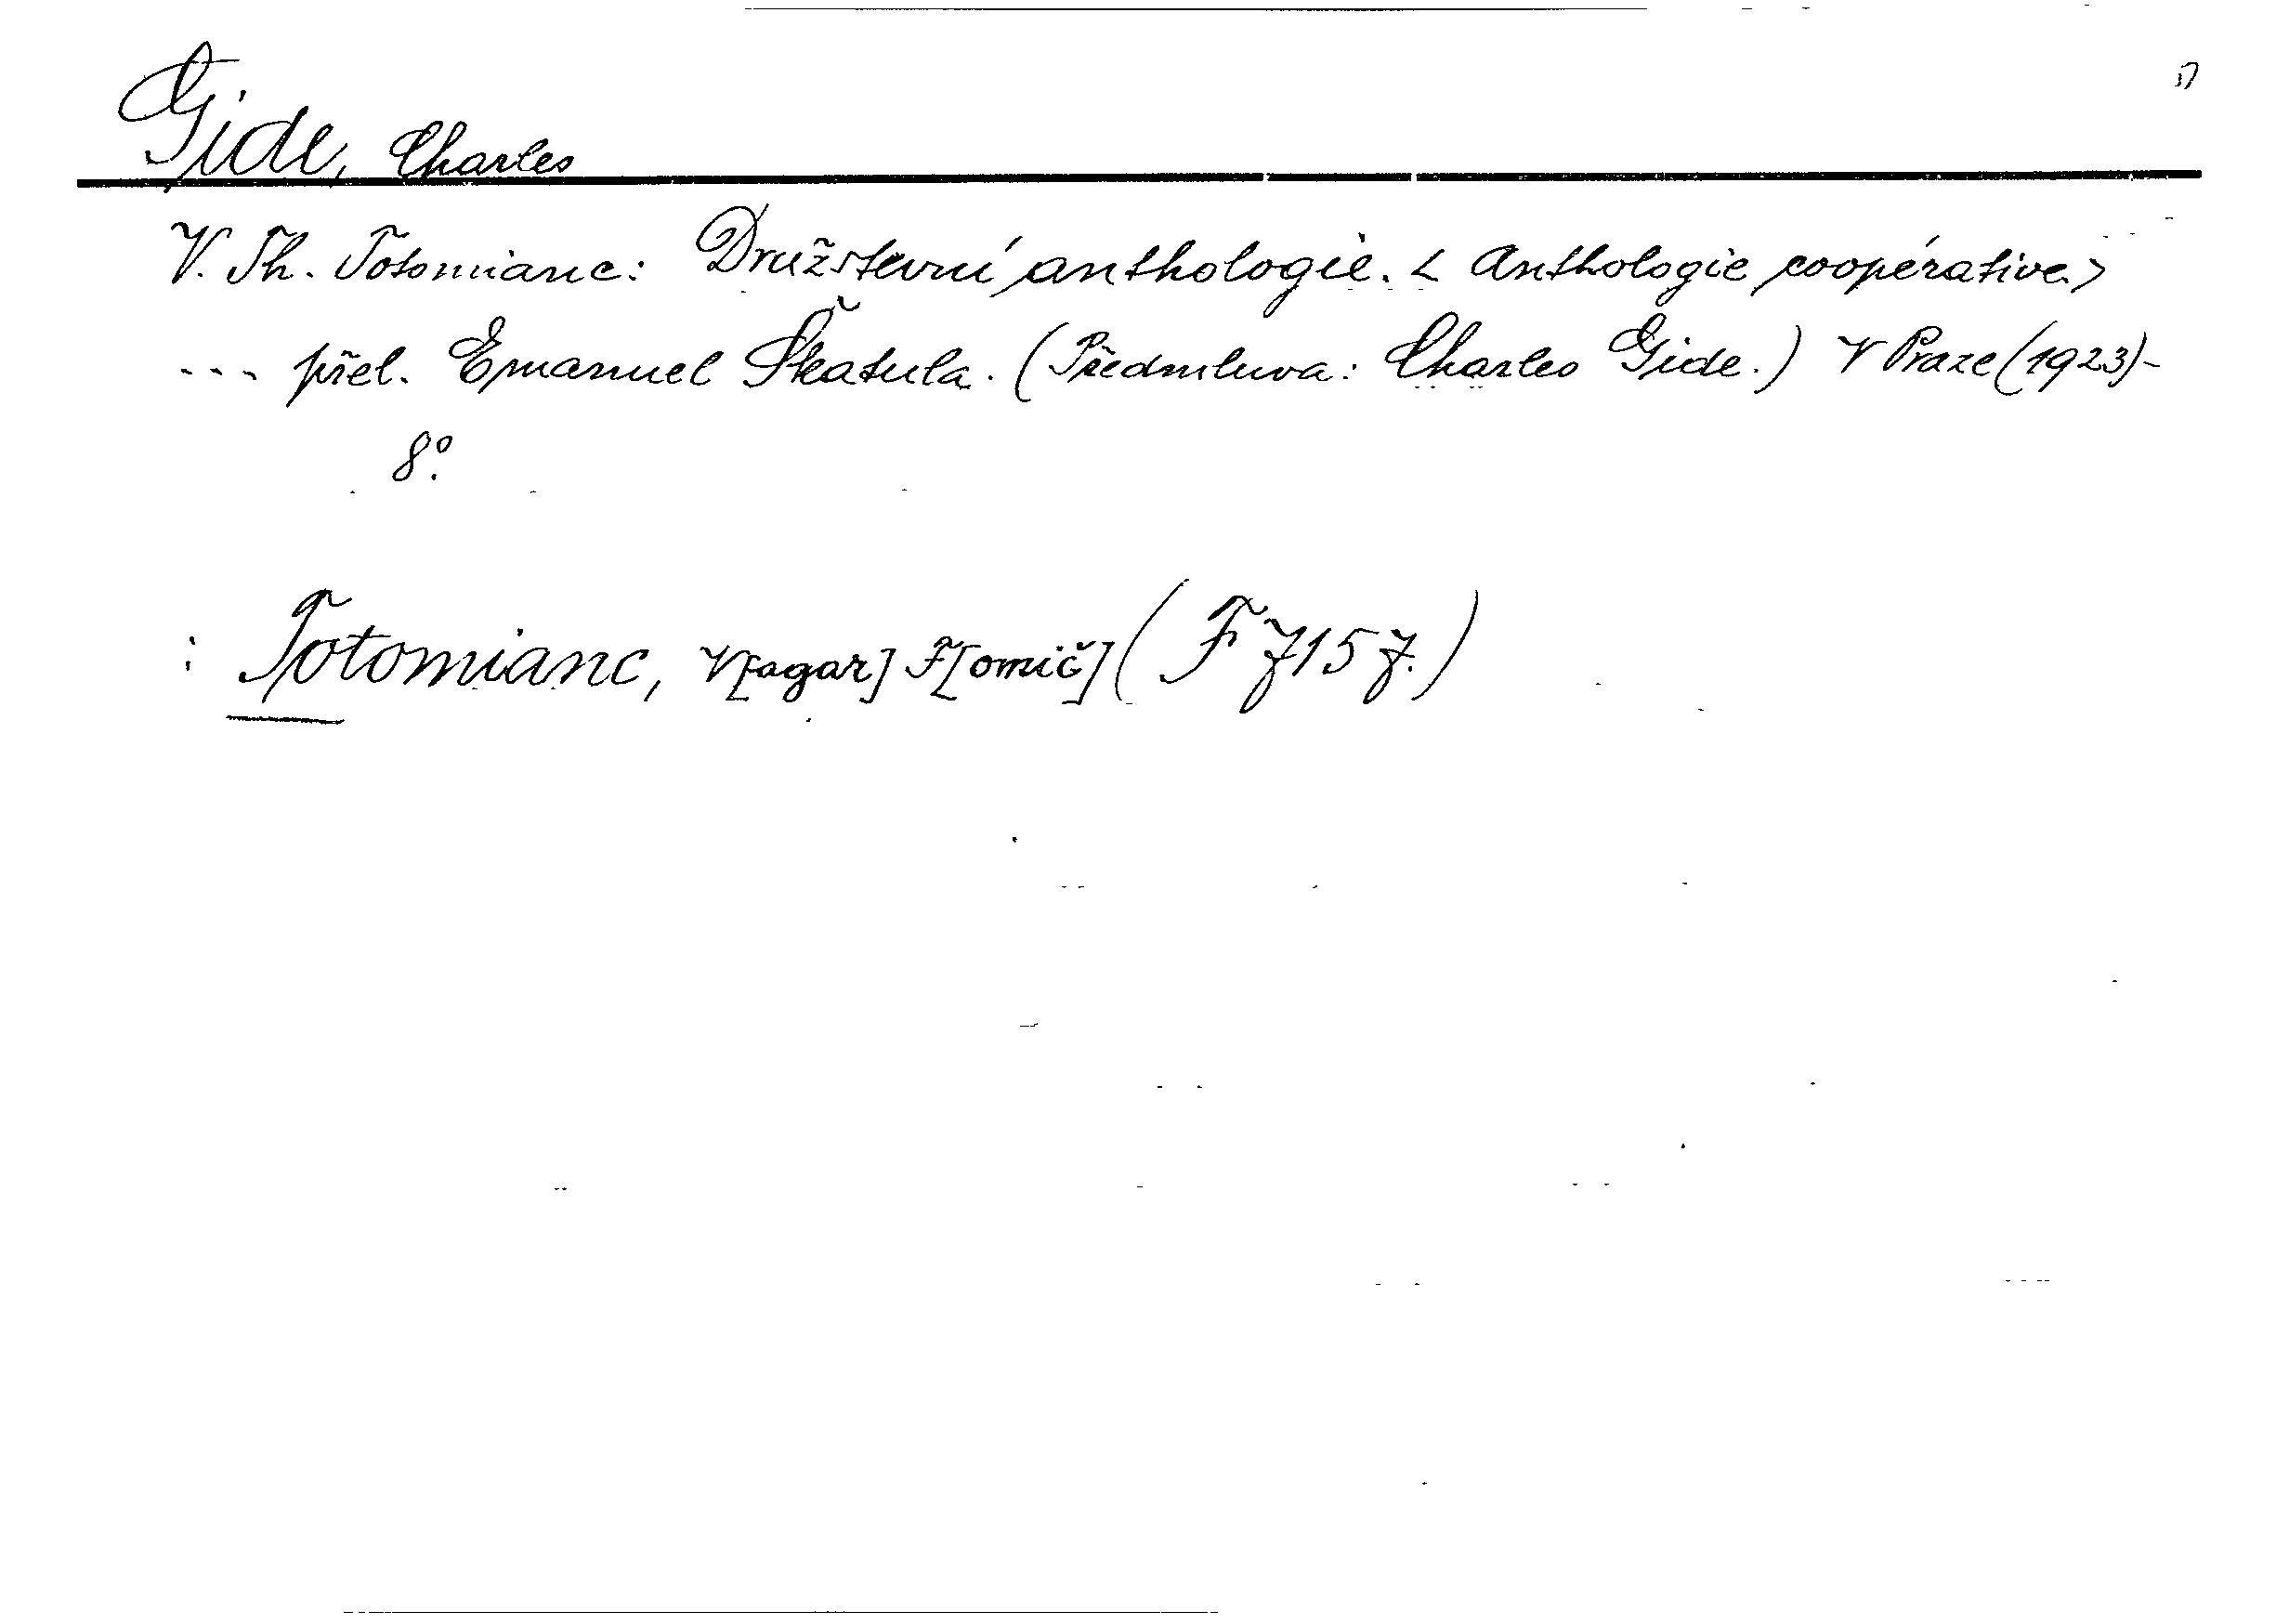 Gide, Charles
V. Th. Totomianc: Družstevní anthologie. < Anthologie coopérative.>
--- přel. Emanuel Škatula. (Předmluva: Charles Gide.) V Praze (1923)-
8°.
: Totomianc, V[agar] F[omič] ( F 7157. )